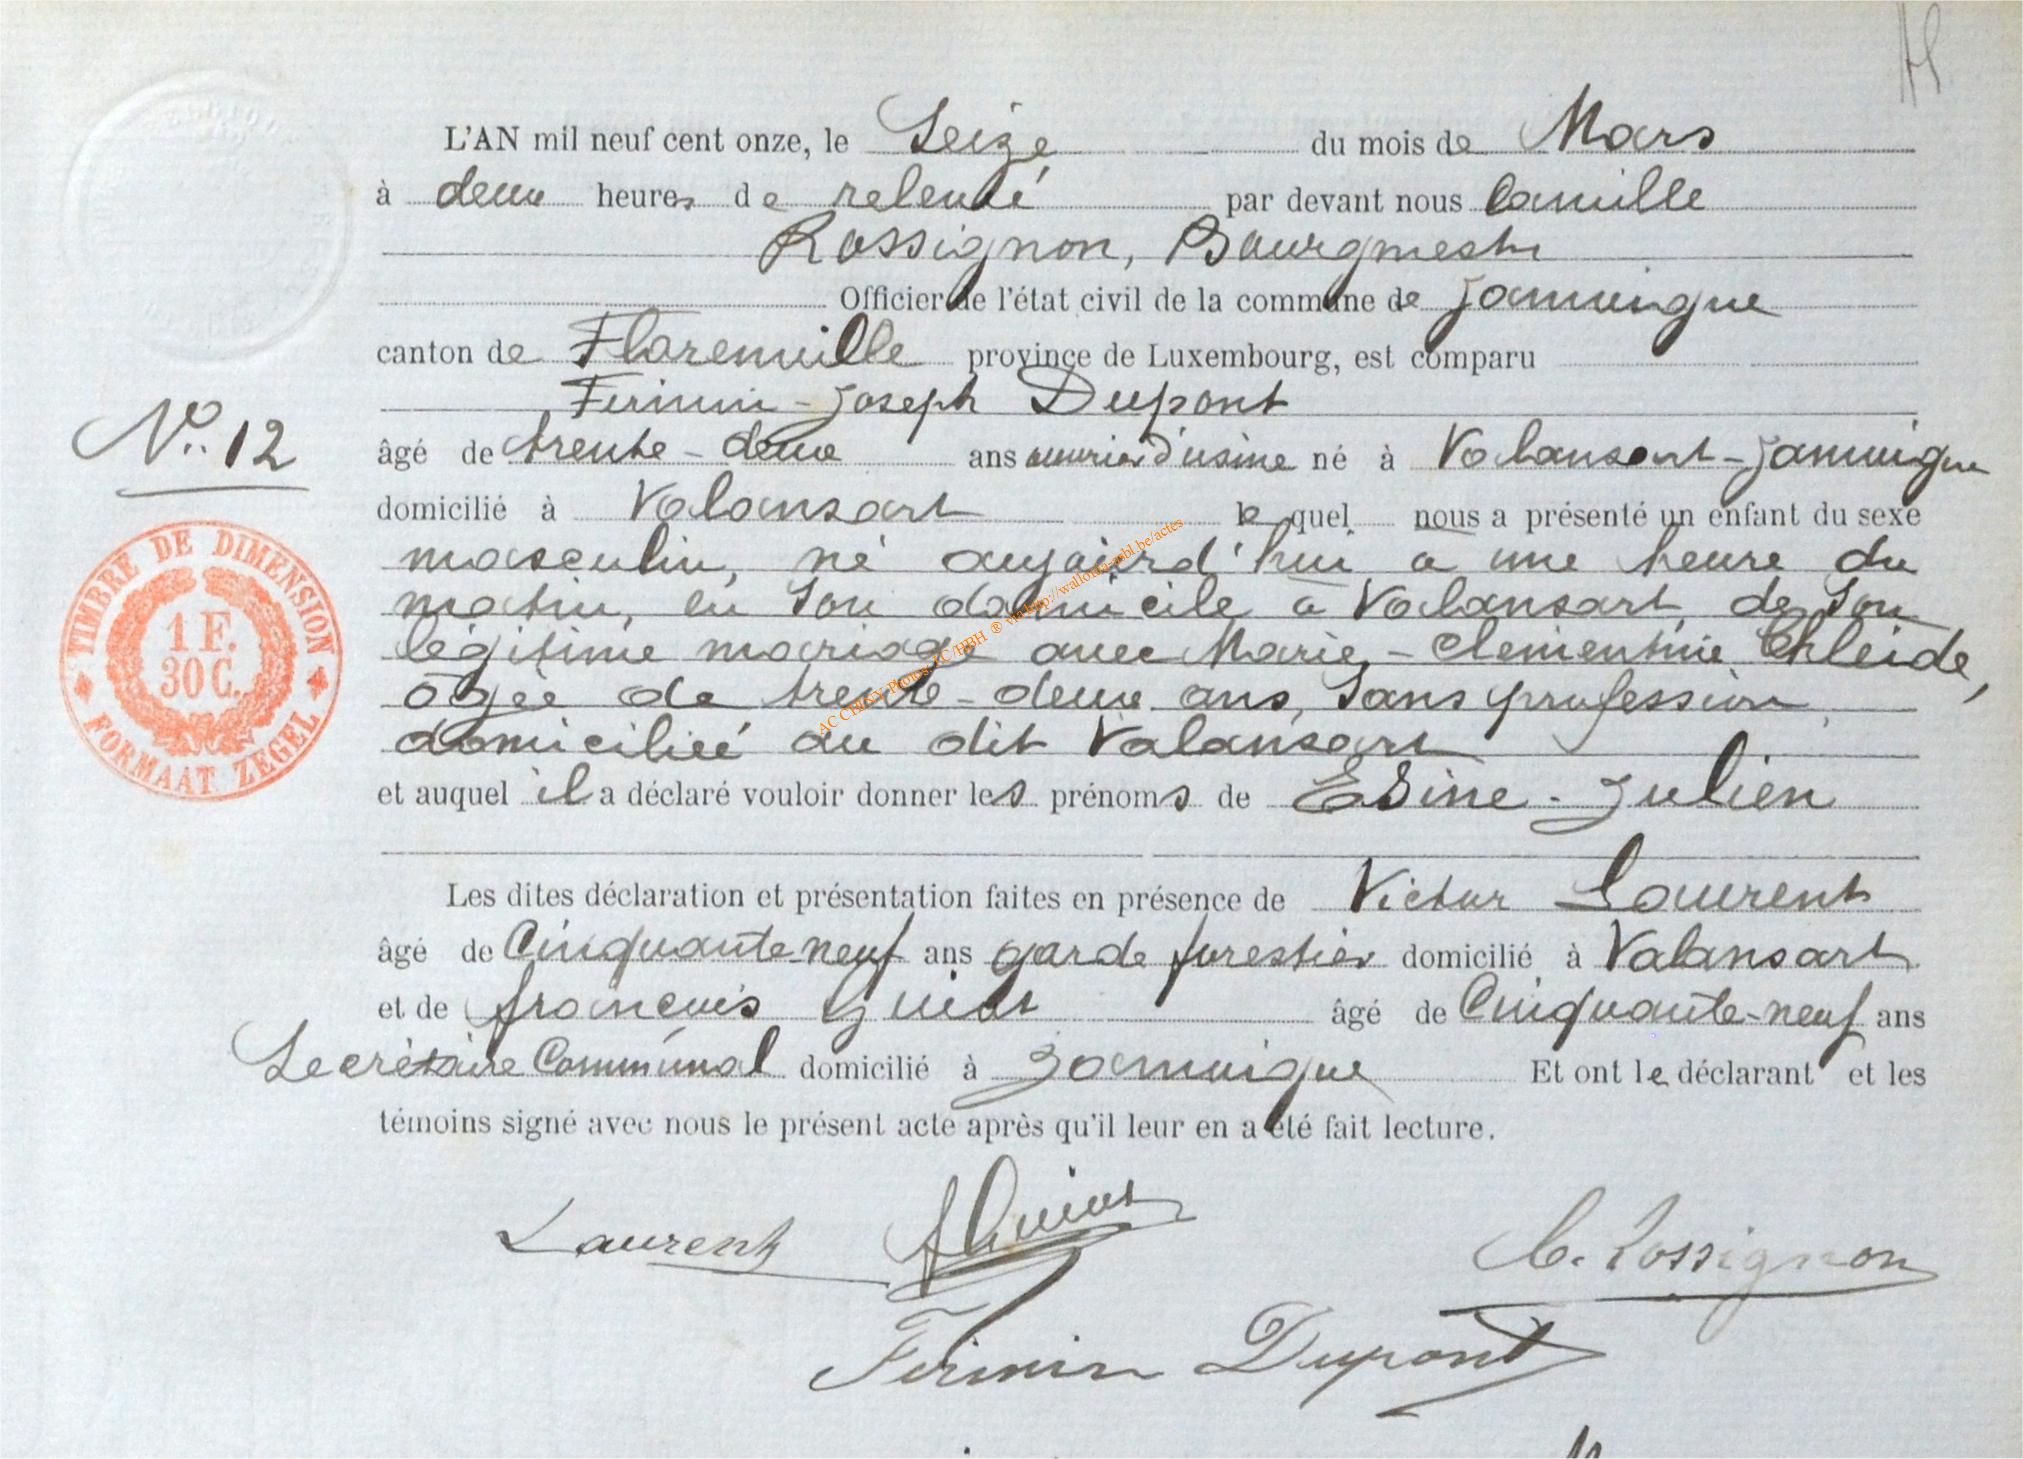 L'AN mil neuf cent onze, le Seize du mois de Mars
à deux heures de relevée par devant nous Camille
Rossignon, Bourgmestre
Officier de l'état civil de la commune de Jamoigne
canton de Florenville province de Luxembourg, est comparu
Firmin-Joseph Dupont
N°. 12
âgé de trente-deux ans ouvrier d'usine né à Valansart-Jamoigne
domicilié à Valansart lequel nous a présenté un enfant du sexe
masculin, né aujourd'hui à une heure du
matin, en son domicile à Valansart, de son
légitime mariage avec Marie-Clémentine Chleide,
âgée de trente-deux ans, sans profession,
domiciliée au dit Valansart
et auquel il a déclaré vouloir donner les prénoms de Edine-Julien
Les dites déclaration et présentation faites en présence de Victor Laurent
âgé de Cinquante-neuf ans garde forestier domicilié à Valansart
et de françois Guiot âgé de Cinquante-neuf ans
Secrétaire Communal domicilié à Jamoigne Et ont le déclarant et les
témoins signé avec nous le présent acte après qu'il leur en a été fait lecture.
Laurent fGuiot C. Rossignon
Firmin Dupont
TIMBRE DE DIMENSION
1 F.
30 C.
FORMAAT ZEGEL